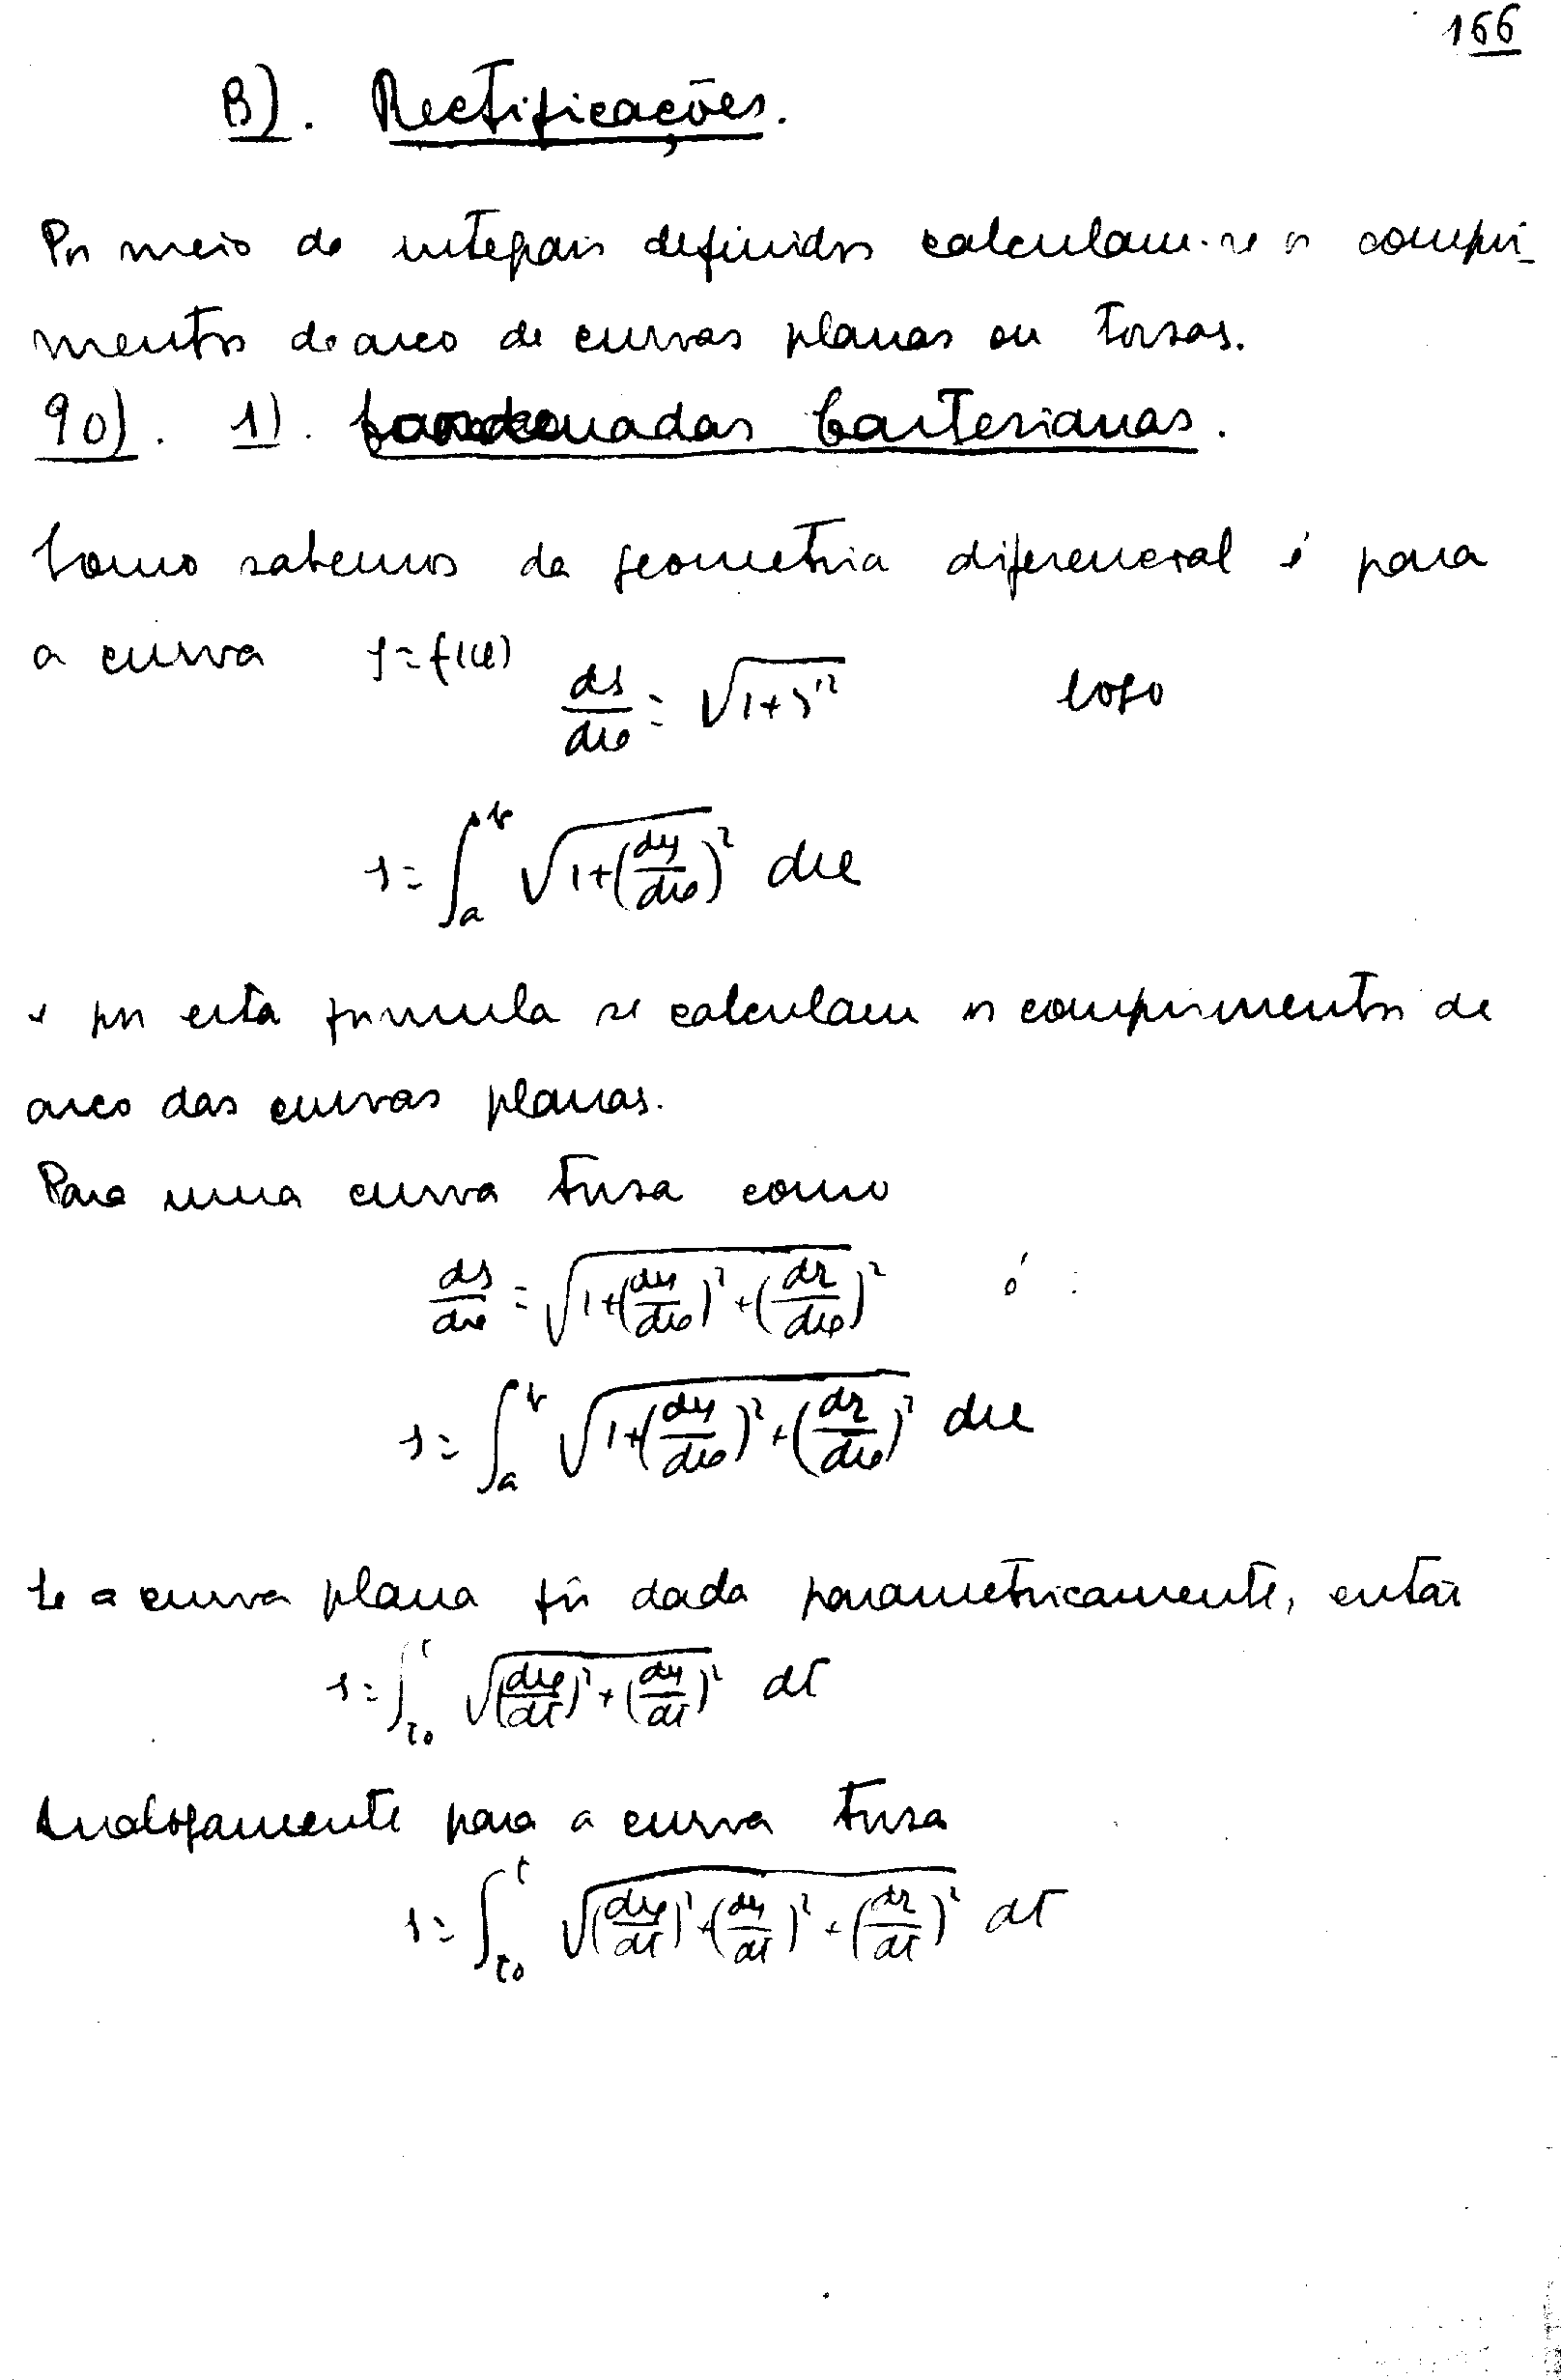 166
B). Rectificações.
Por meio de integrais definidos calculam-se os compri-
mentos de arco de curvas planas ou torsas.
90). 1). Coordenadas Cartesianas.
Como sabemos da geometria diferencial é para
a curva y = f(x)
ds/dx = √(1+y'²) logo
s = ∫_a^b √(1+(dy/dx)²) dx
e por esta formula se calculam os comprimentos de
arco das curvas planas.
Para uma curva torsa como
ds/dx = √(1+(dy/dx)²+(dz/dx)²) é :
s = ∫_a^b √(1+(dy/dx)²+(dz/dx)²) dx
Se a curva plana fôr dada parametricamente, então
s = ∫_{t₀}^t √((dx/dt)²+(dy/dt)²) dt
Analogamente para a curva torsa
s = ∫_{t₀}^t √((dx/dt)²+(dy/dt)²+(dz/dt)²) dt